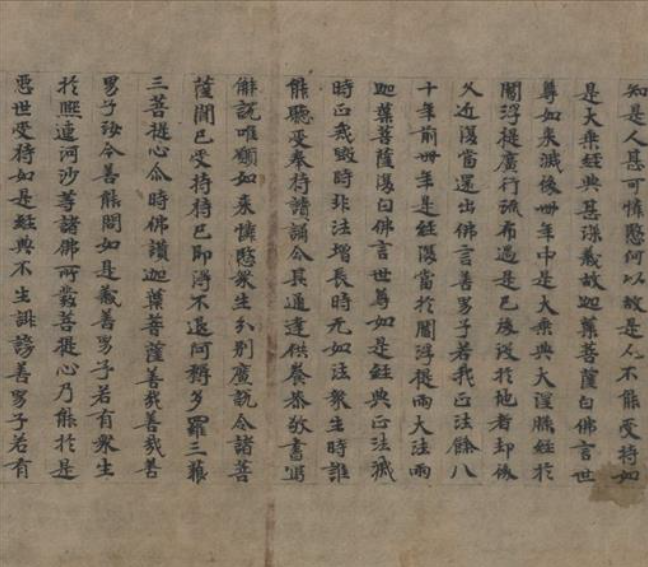 知是人甚可憐愍何以故是人不能受持如
是大乘經典甚深義故迦葉菩薩白佛言世
尊如來滅後卌年中是大乘典大涅槃經於
閻浮提廣行流布過是已後沒於地者却後
久近復當還出佛言善男子若我正法餘八
十年前卌年是經復當於閻浮提雨大法雨
迦葉菩薩復白佛言世尊如是經典正法滅
時正戒毀時非法增長時无如法衆生時誰
能聽受奉持讀誦令其通達供養恭敬書寫
解說唯願如來憐愍衆生分別廣說令諸菩
薩聞已受持持已即得不退阿耨多羅三藐
三菩提心尒時佛讚迦葉菩薩善哉善哉善
男子汝今善能問如是義善男子若有衆生
於熙連河沙等諸佛所發菩提心乃能於是
惡世受持如是經典不生誹謗善男子若有